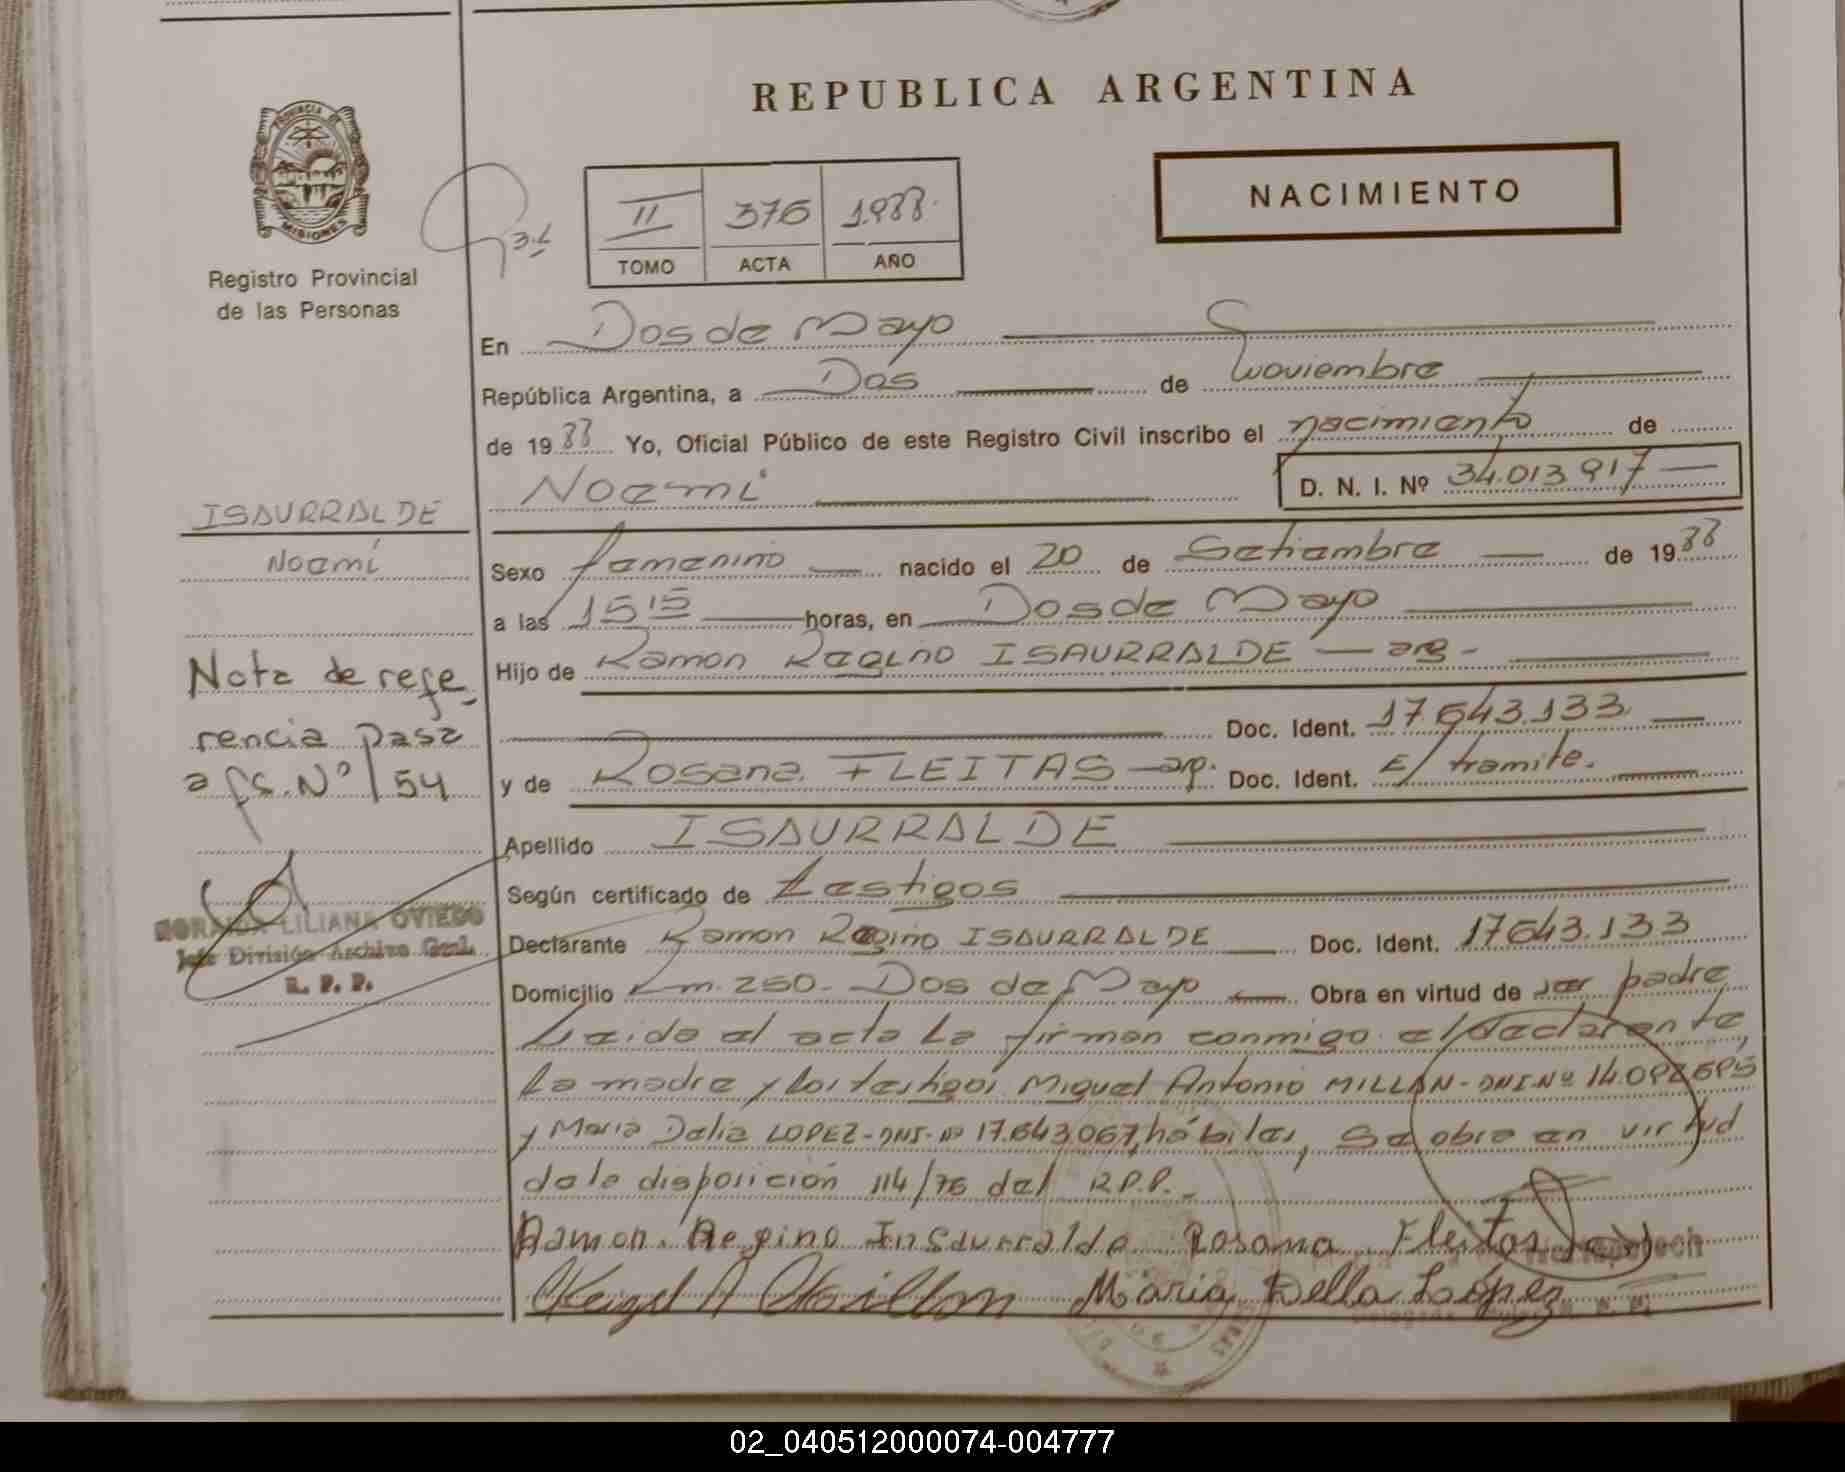 REPUBLICA ARGENTINA
PROVINCIA DE
MISIONES
Registro Provincial
de las Personas
II 376 1988
TOMO ACTA AÑO
NACIMIENTO
En Dos de Mayo
República Argentina, a Dos de Noviembre
de 1988 Yo, Oficial Público de este Registro Civil inscribo el nacimiento de
Noemi D. N. I. Nº 34.013.917
ISAURRALDE
Noemi
Sexo femenino nacido el 20 de Setiembre de 1988
a las 15 15 horas, en Dos de Mayo
Hijo de Ramon Regino ISAURRALDE - arg -
Doc. Ident. 17.643.133
y de Rosana FLEITAS - arg. Doc. Ident. E/ tramite.
Nota de refe
rencia pasa
a fs. Nº 154
Apellido ISAURRALDE
Según certificado de testigos
Declarante Ramon Regino ISAURRALDE Doc. Ident. 17643.133
LILIANA OVIEDO
Jefe División Archivo Gral.
R. P. P.
Domicilio Km. 250 - Dos de Mayo Obra en virtud de ser padre
Leida el acta la firman conmigo el declarante,
la madre y los testigos Miguel Antonio MILLAN - DNI. Nº
y Maria Delia LOPEZ - DNI - Nº 17.643.067, hábiles, se obra en virtud
de la disposición 114/76 del R.P.P.-
Ramon Regino Insaurralde Rosana Fleitas
Maria Della López
02_040512000074-004777